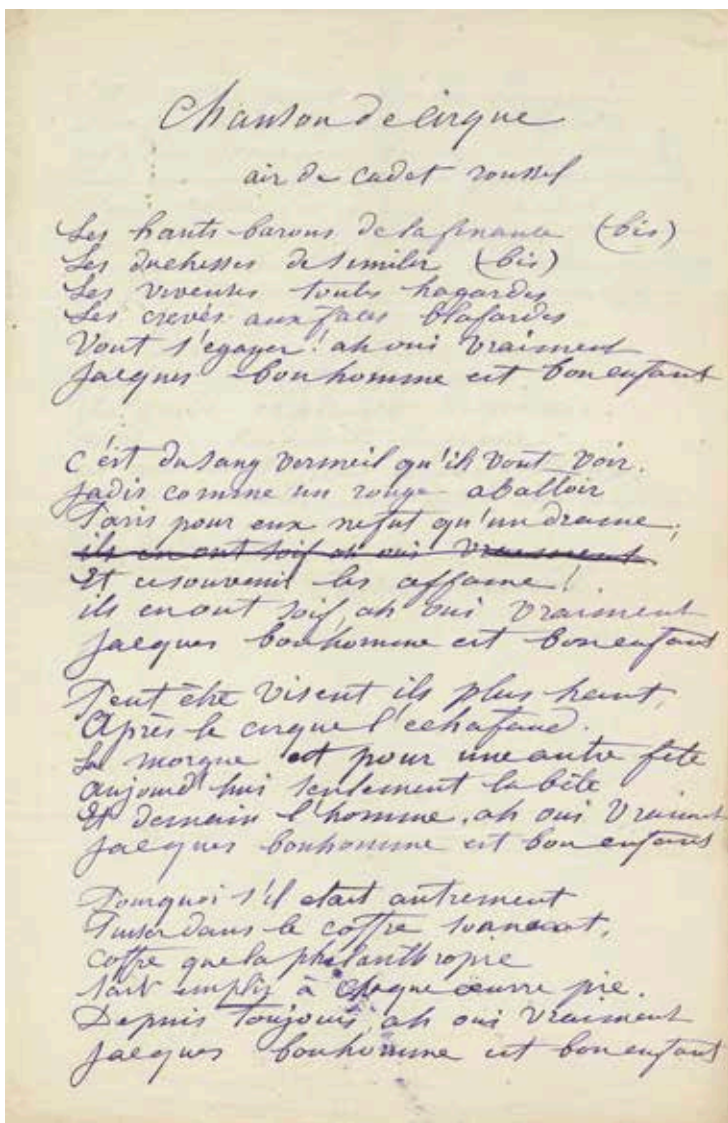 Chanson de cirque
air de cadet roussel
Les hauts barons de la finance (bis)
Les duchesses de similor (bis)
Les viveuses toutes hagardes
Les crevés aux faces blafardes
Vont s'egayer! ah oui vraiment
Jacques bonhomme est bon enfant
C'est du sang vermeil qu'ils vont voir.
Jadis comme un rouge abattoir
Paris pour eux ne fut qu'un drame;
ils en ont soif ah oui vraiment
Et ce souvenir les affame!
ils en ont soif, ah oui vraiment
Jacques bonhomme est bon enfant
Peut être visent ils plus haut,
Après le cirque l'echafaud.
La morgue et pour une autre fete
aujourd'hui seulement la bête
Et demain l'homme. ah oui vraiment
Jacques bonhomme est bon enfant
Pourquoi s'il etait autrement
Puiser dans le coffre sonnant,
coffre que la philanthropie
sait emplir à chaque œuvre pie.
Depuis toujours, ah oui vraiment
Jacques bonhomme est bon enfant